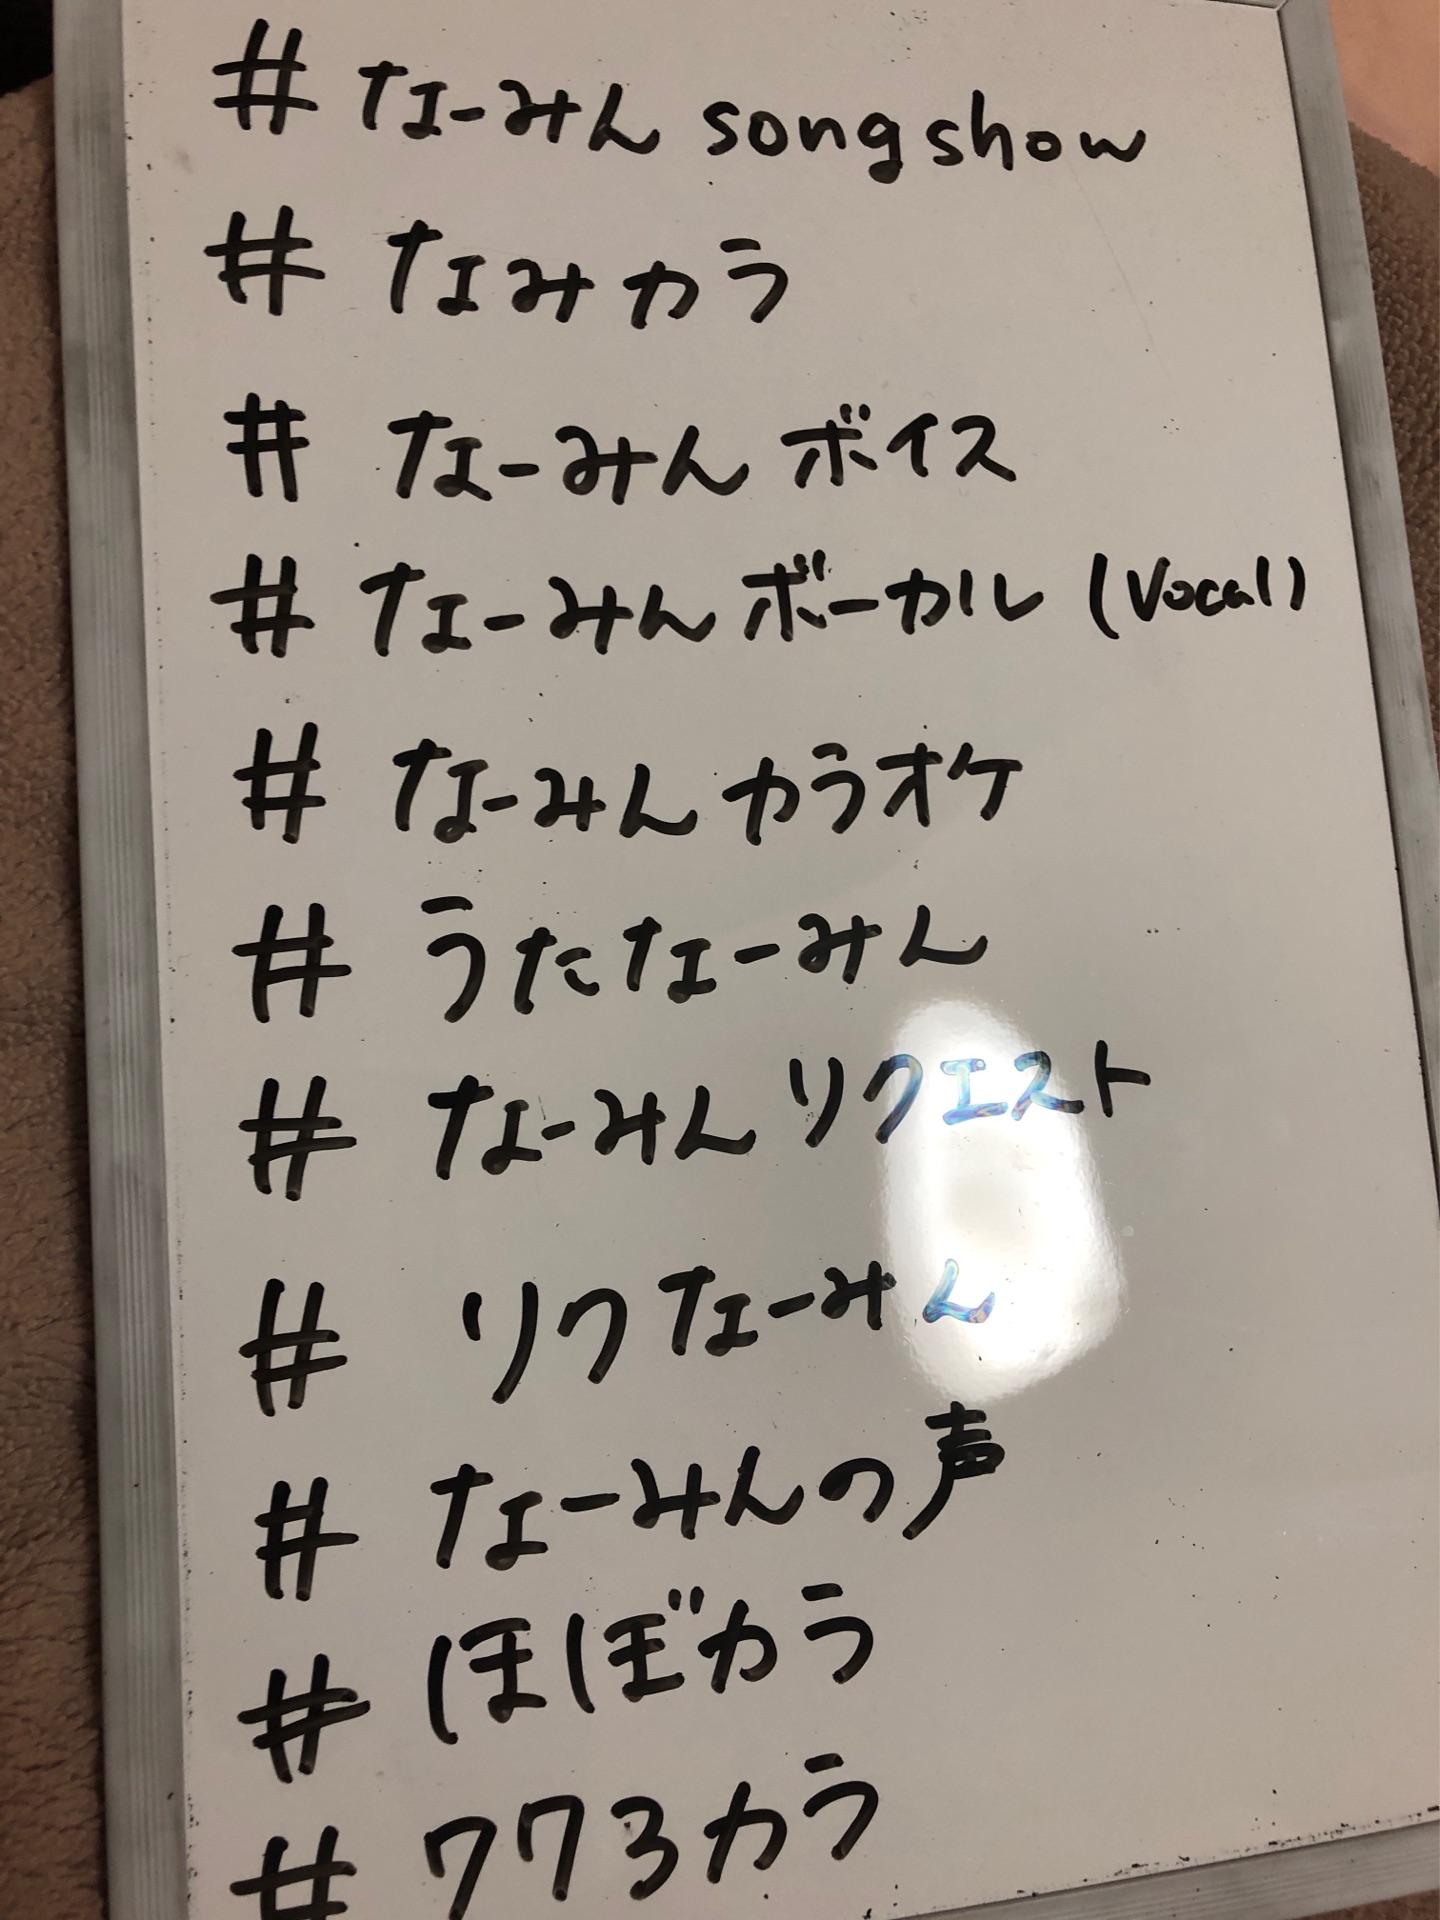 # なーみん songshow
# なみカラ
# なーみん ボイス
# なーみん ボーカル (Vocal)
# なーみん カラオケ
# うたなーみん
# なーみん リクエスト
# リクなーみん
# なーみんの声
# ほぼカラ
# 773カラ